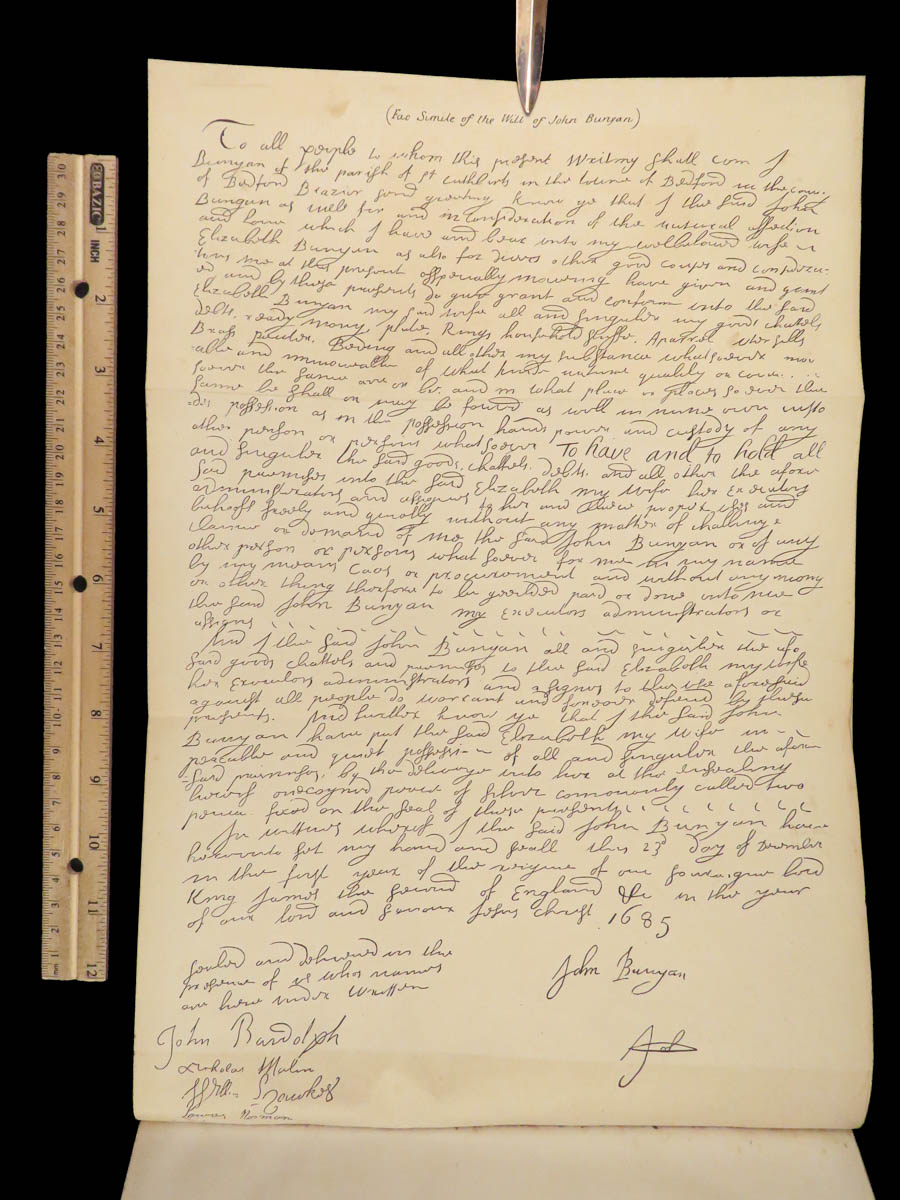 (Fac Simile of the Will of John Bunyan)
To all people to whom this present Writing shall com I
Bunyan of the parish of St Cuthberts in the towne of Bedford in the
of Bedford Brazier send greeting know ye that I the said John
Bunyan as well for and in consideration of the natural affection
and Love which I have and bear unto my wellbeloved wife
Elizabeth Bunyan as also for divers other good causes and considera-
me at this present especially moveing have given and grant
ed and by these presents do give grant and conferm unto the said
Elizabeth Bunyan my said wife all and singuler my goods chattels
debts, ready mony, plate, Rings household stuffe. Aparrel Utensells
Brass pewter. Beding and all other my substance whatsoever mov
able and immovable of what kinde nature quality or
soever the same are or be and in what place or places soever the
same be shall or may be found as well in mine own custo
des possession as in the possession hands power and custody of any
other person or persons whatsoever To have and to hold all
and singuler the said goods, chattels, debts, and all other the afore
said premises unto the said Elizabeth my wife her executors
administrators and assignes to her and their proper uses and
behoofs freely and quietly without any matter of challinge
claime or demand of me the said John Bunyan or of any
other person or persons what soever for me in my name
by my means caus or procurement and without any mony
or other thing therfore to be yeelded paid or done unto me
the said John Bunyan my executors administrators or
assigns
And I the said John Bunyan all and singuler the afo
said goods chattels and premises to the said Elizabeth my wife
her executors administrators and assignes to the use aforesaid
against all people do warrant and forever defend by these
presents. And further know ye that I the said John
Bunyan have put the said Elizabeth my wife in
peacable and quiet possession of all and singuler the afore
said premises, by the delivrye unto her at the ensealing
hereof one coyned peece of silver commonly called two
pence fixed on the seal of these presents
In wittnes wherof I the said John Bunyan have
hereunto set my hand and seall this 23d day of December
in the first year of the reigne of our soveraigne lord
King James the second of England &c in the year
of our lord and saviour Jesus Christ 1685
sealed and delivered in the
presence of us whos names
are here under written
John Bunyan
John Bardolph
Nicholas Malin
Will: Hawkes
Lewes Norman
COBRAZIC
INCH
1 2 3 4 5 6 7 8 9 10 11 12
30 29 28 27 26 25 24 23 22 21 20 19 18 17 16 15 14 13 12 11 10 9 8 7 6 5 4 3 2 1 mm